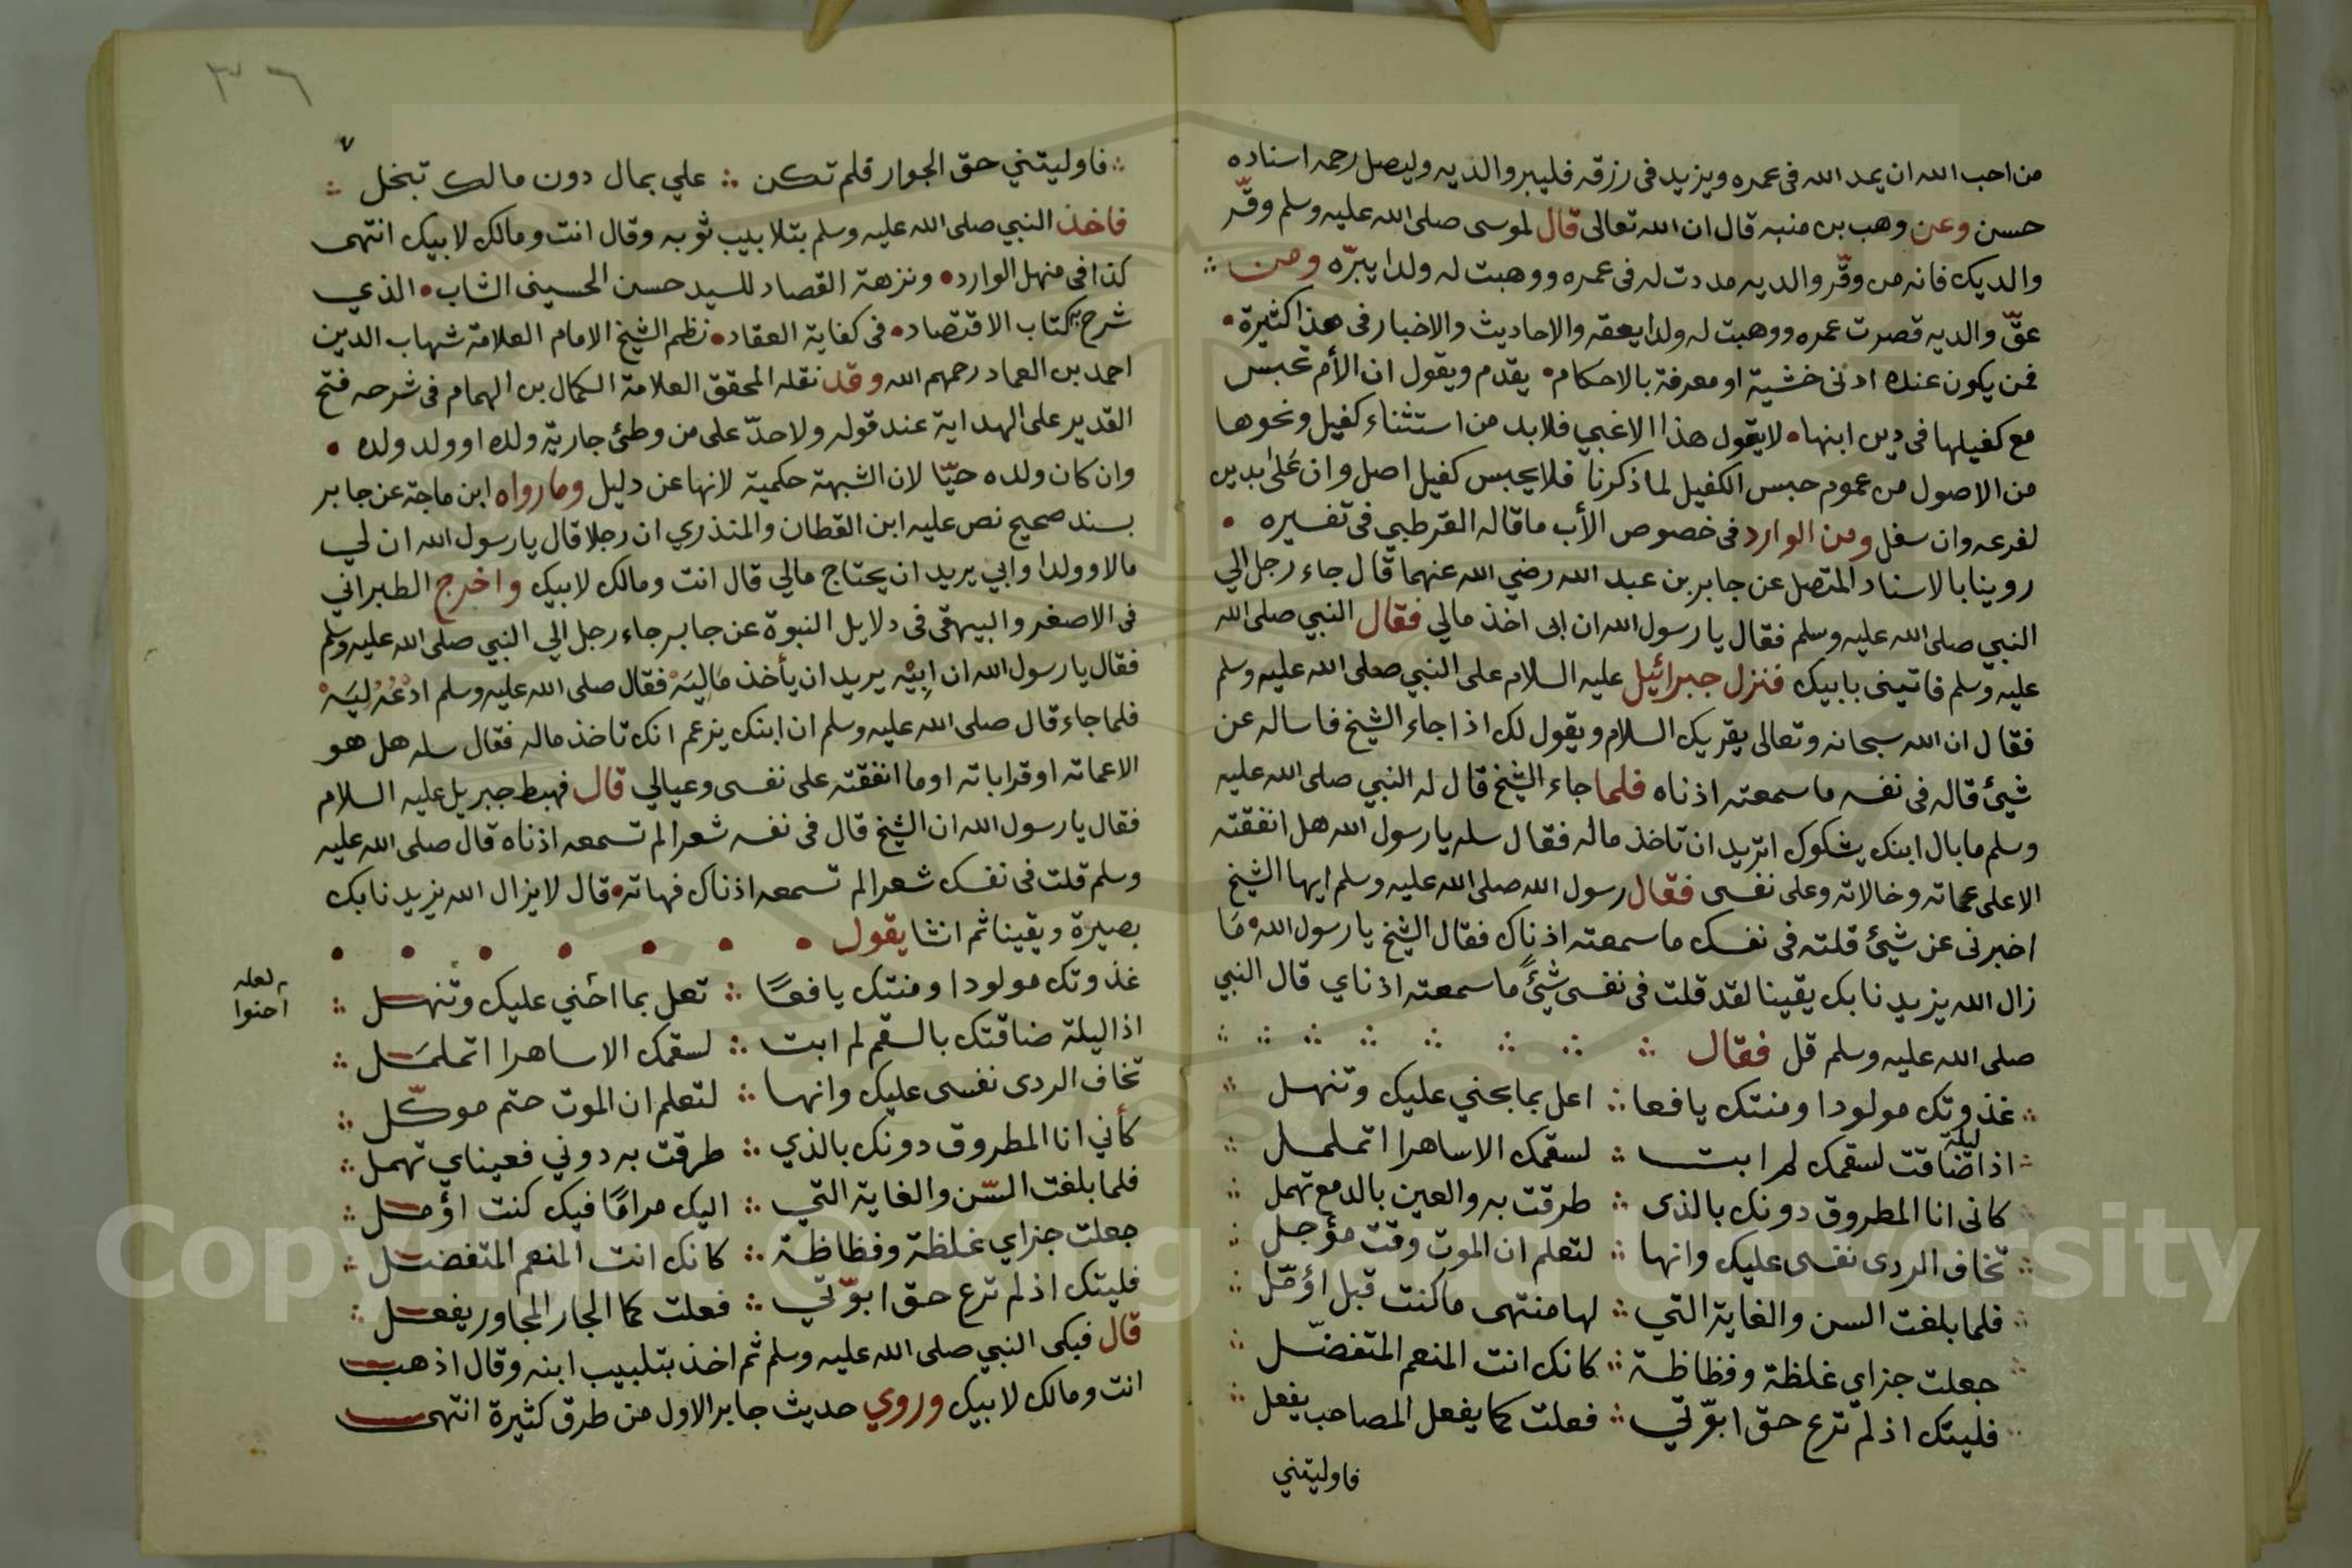 من احب الله ان يمد الله فى عمره ويزيد فى رزقه فليبر والديه وليصل رحمه اسناده
حسن وعن وهب بن منبه قال ان الله تعالى قال لموسى صلى الله عليه وسلم وقّر
والديك فانه من وقّر والديه مددت له فى عمره ووهبت له ولدا يبرّه ومن
عقّ والديه قصرت عمره ووهبت له ولدا يعقه والاحاديث والاخبار فى هذا كثيرة
فمن يكون عنده ادنى خشية او معرفة بالاحكام يقدم ويقول ان الأم تحبس
مع كفيلها فى دين ابنها لا يقول هذا الا غبي فلا بد من استثناء كفيل ونحوها
من الاصول من عموم حبس الكفيل لما ذكرنا فلا يحبس كفيل اصل وان على بدين
لفرعه وان سفل ومن الوارد فى خصوص الأب ما قاله القرطبي فى تفسيره
روينا بالاسناد المتصل عن جابر بن عبد الله رضي الله عنهما قال جاء رجل الي
النبي صلى الله عليه وسلم فقال يا رسول الله ان ابى اخذ مالي فقال النبي صلى الله
عليه وسلم فاتينى بابيك فنزل جبرائيل عليه السلام على النبي صلى الله عليه وسلم
فقال ان الله سبحانه وتعالى يقريك السلام ويقول لك اذا جاء الشيخ فاساله عن
شيئ قاله فى نفسه ما سمعته اذناه فلما جاء الشيخ قال له النبي صلى الله عليه
وسلم ما بال ابنك يشكوك اتريد ان تاخذ ماله فقال سله يا رسول الله هل انفقته
الا على عماته وخالاته وعلى نفسى فقال رسول الله صلى الله عليه وسلم ايها الشيخ
اخبرنى عن شيئ قلته فى نفسك ما سمعته اذناك فقال الشيخ يا رسول الله مَا
زال الله يزيدنا بك يقينا لقد قلت فى نفسى شيئً ما سمعته اذناي قال النبي
صلى الله عليه وسلم قل فقال
غذوتك مولودا ومنتك يافعا اعل بما يجني عليك وتنهل
اذا ليلة ضاقت لسقمك لم ابت لسقمك الا ساهرا اتململ
كانى انا المطروق دونك بالذى طرقت به والعين بالدمع تهمل
تخاف الردى نفسى عليك وانها لتعلم ان الموت وقت مؤجل
فلما بلغت السن والغاية التي لها منتهى ما كنت قبل اؤمّل
جعلت جزاي غلظة وفظاظة كانك انت المنعم المتفضّل
فليتك اذ لم ترع حق ابوّتي فعلت كما يفعل المصاحب يفعل
فاوليتني
٣٦
٧
فاوليتني حق الجوار فلم تكن علي بمال دون مالك تبخل
فاخذ النبي صلى الله عليه وسلم بتلابيب ثوبه وقال انت ومالك لابيك انتهى
كذا فى منهل الوارد ونزهة القصاد للسيد حسن الحسينى الشاب الذي
شرح به كتاب الاقتصاد فى كفاية العقاد نظم الشيخ الامام العلامة شهاب الدين
احمد بن العماد رحمهم الله وقد نقله المحقق العلامة الكمال بن الهمام فى شرحه فتح
القدير على الهداية عند قوله ولا حدّ على من وطئ جارية ولده او ولد ولده
وان كان ولده حيّا لان الشبهة حكمية لانها عن دليل وما رواه ابن ماجة عن جابر
بسند صحيح نص عليه ابن القطان والمنذري ان رجلا قال يا رسول الله ان لي
مالا وولدا وابي يريد ان يحتاج مالي قال انت ومالك لابيك واخرج الطبراني
فى الاصغر والبيهقى فى دلايل النبوة عن جابر جاء رجل الي النبي صلى الله عليه وسلم
فقال يا رسول الله ان ابِيْه يريد ان يأخذ مَالِيَهْ فقال صلى الله عليه وسلم ادْعُهُ لِيَهْ
فلما جاء قال صلى الله عليه وسلم ان ابنك يزعم انك تاخذ ماله فقال سله هل هو
الا عماته او قراباته او ما انفقته على نفسى وعيالي قال فهبط جبريل عليه السلام
فقال يا رسول الله ان الشيخ قال فى نفسه شعرا لم تسمعه اذناه قال صلى الله عليه
وسلم قلت فى نفسك شعرا لم تسمعه اذناك فهاته قال لا يزال الله يزيدنا بك
بصيرة ويقينا ثم انشا يقول
غذوتك مولودا ومنتك يافعًا تعل بما احني عليك وتنهل
لعله
احنوا
اذا ليلة ضاقتك بالسقم لم ابت لسقمك الا ساهرا اتململ
تخاف الردى نفسى عليك وانها لتعلم ان الموت حتم موكّل
كأني انا المطروق دونك بالذي طرقت به دوني فعيناي تهمل
فلما بلغت السّن والغاية التي اليك مرامًا فيك كنت اؤمل
جعلت جزاي غلظة وفظاظة كانك انت المنعم المتفضل
فليتك اذ لم ترع حق ابوّتي فعلت كما الجار المجاور يفعل
قال فبكى النبي صلى الله عليه وسلم ثم اخذ بتلبيب ابنه وقال اذهب
انت ومالك لابيك وروي حديث جابر الاول من طرق كثيرة انتهى
Copyright © King Saud University